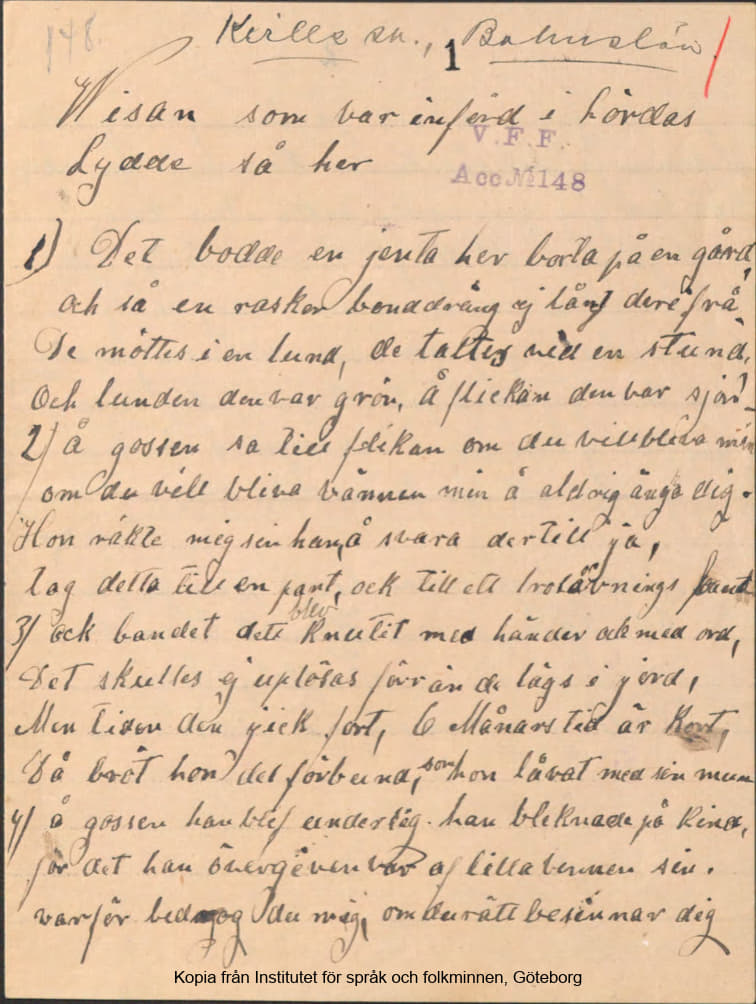 148.
Kville sn., Bohuslän
1
Wisan som var införd i hördas
V.F.F.
Lydde så her
Acc № 148
1) Det bodde en jenta her borta på en gård,
och så en rasker bonddräng ej långt derifrå
De möttes i en lund, de taltes ved en stund,
Och lunden den var grön, å flickan den var sjön
2) Å gossen sa till flikan om du vill bliva min
om du vill bliva vännen min å aldrig ånga dig.
Hon räkte mig sin han, å svara der till ja,
tag detta till en pant, ock till ett trolåvnings band
3) ock bandet dett blev knutit med händer ock med ord,
Det skulles ej uplösas förr än de lågs i jord,
Men tiden den jick fort, 6 Månars tid är kort,
Då bröt hon det förbund, som hon låvat med sin mun
4) å gossen han blef undersig. han bleknade på kind,
för det han övergiven var af lilla vennen sin.
varför bedrog du mig, om du rätt besinnar dig
Kopia från Institutet för språk och folkminnen, Göteborg